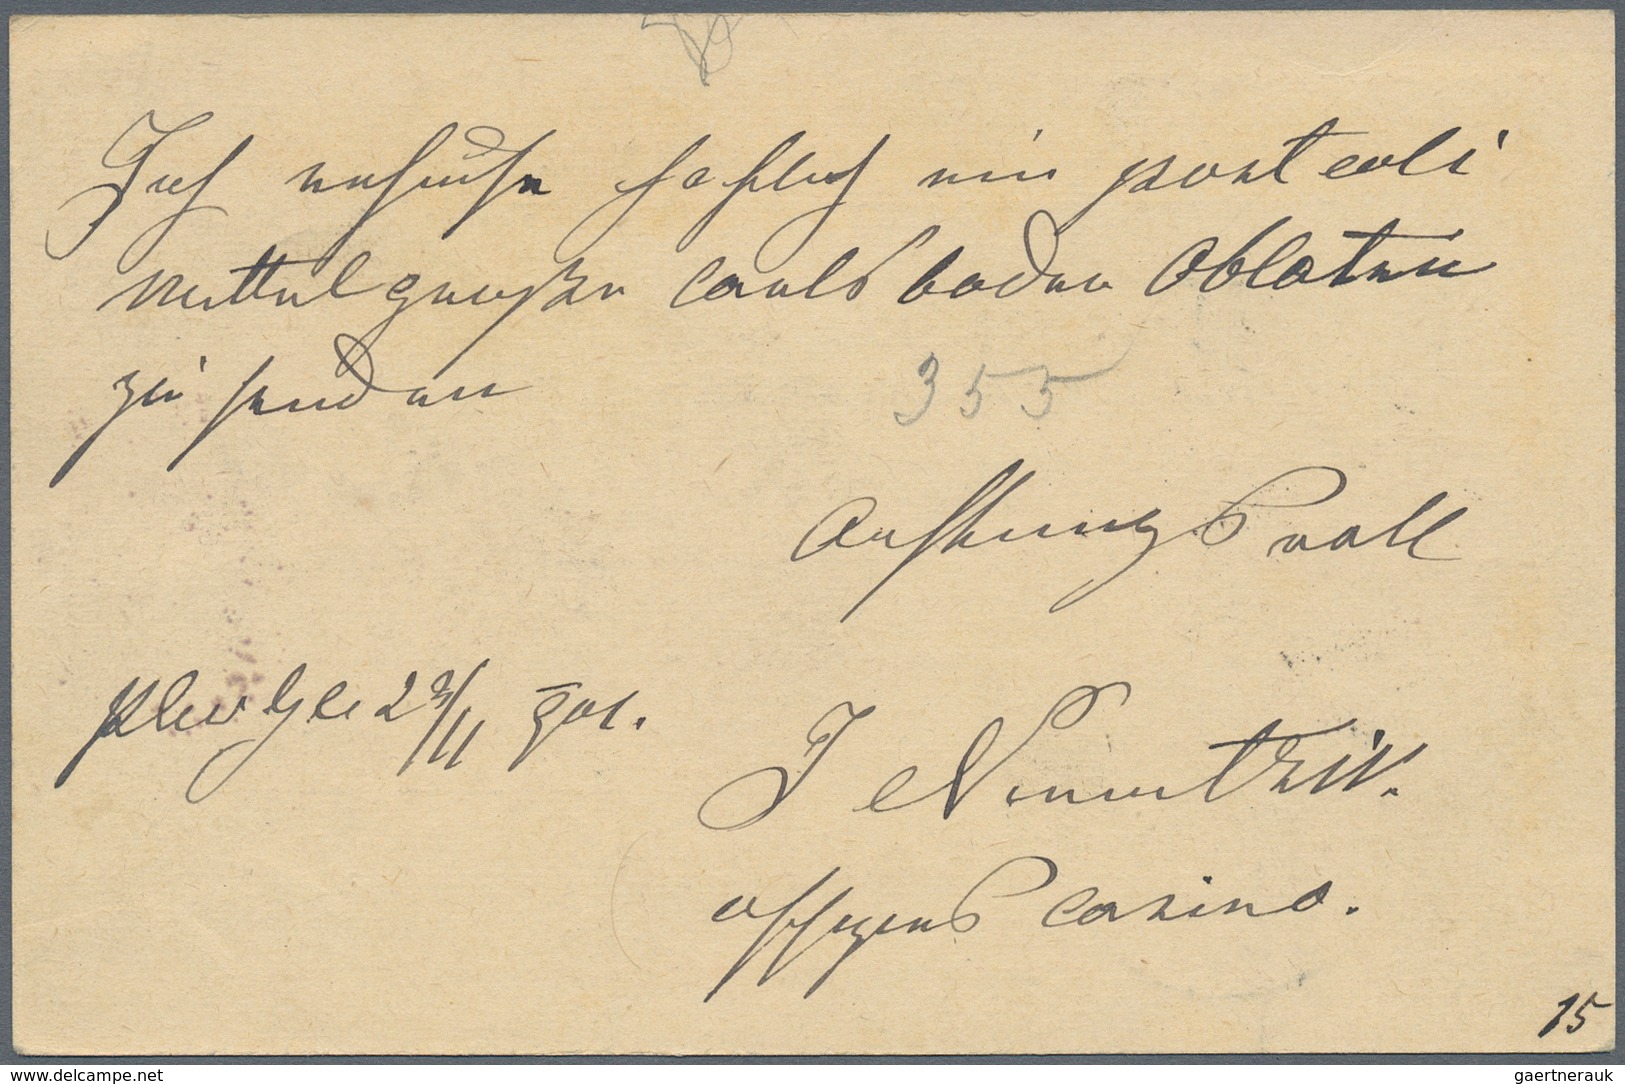 Ich ersuche höflich ein postcoli
mittelgroße Carlsbader Oblaten
zu senden
355
Achtungsvoll
Plevlje 23/11 901.
J
Offiziers Casino.
15
www.delcampe.net
gaertnerauk